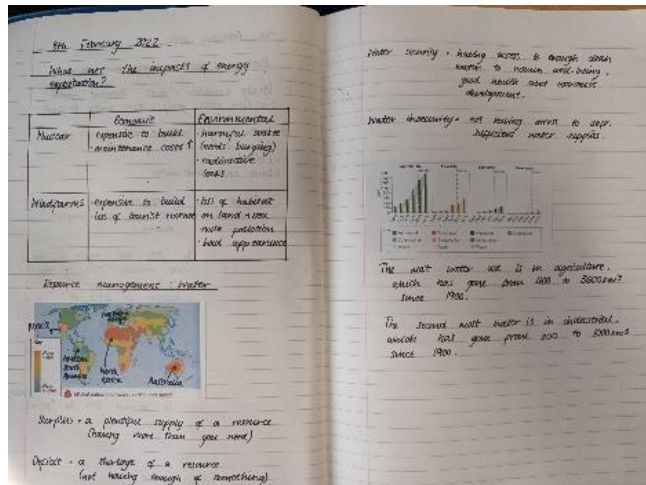 8th February 2022
What are the impacts of energy
exploitation?
Economic
Environmental
Nuclear
· expensive to build
· maintenance costs ↑
· harmful waste
(needs burying)
· radioactive
leaks
Windfarms
· expensive to build
loss of tourist
· loss of habitat
on land + sea
noise pollution
· bad appearance
Resource management: Water
South
America
North
Africa
Australia
Surplus - a plentiful supply of a resource
(having more than you need)
Deficit - a shortage of a resource
(not having enough of something)
Water security - having access to enough clean
water to well-being,
good health and economic
development.
Water insecurity - not having access to
sufficient water supplies.
The most water use is in agriculture,
which has gone from to 3600km³
since 1900.
The second most water is in industrial,
which has gone from to
since 1900.